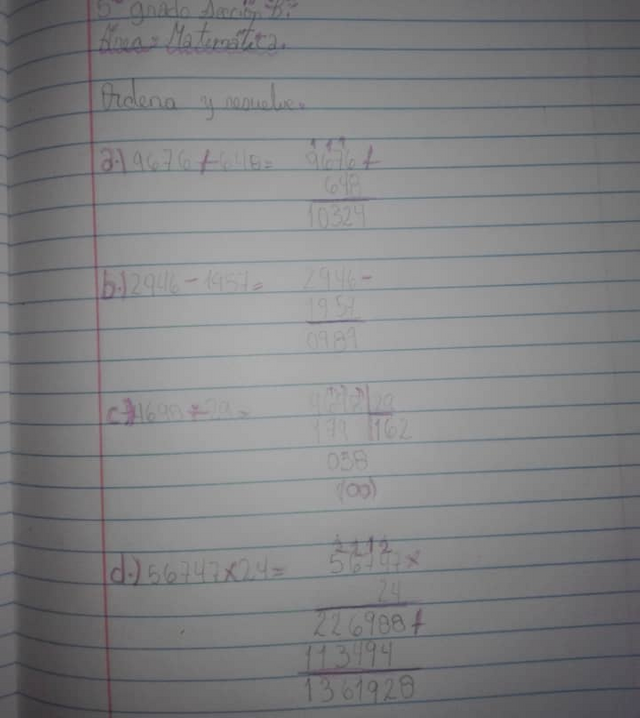 5° grado Sección "B".
Área: Matemática.
Ordena y resuelve.
a.) 9676 + 648 = 9676 +
648
10324
b.) 2946 - 1957 = 2946 -
1957
0989
c.)
162
038
(00)
d.) 56747 x 24 = 56747 x
24
226988 +
113494
1361928